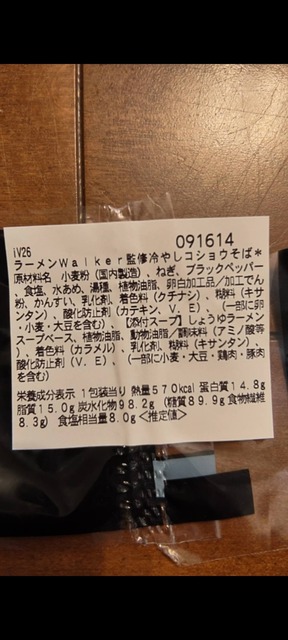 iV26 091614
ラーメンWalker監修冷やしコショウそば*
原材料名 小麦粉(国内製造)、ねぎ、ブラックペッパー
、食塩、水あめ、湯種、植物油脂、卵白加工品/加工でん
粉、かんすい、乳化剤、着色料(クチナシ)、粘料(キサ
ンタン)、酸化防止剤(カテキン、V.E)、(一部に卵
・小麦・大豆を含む)、【添付スープ】しょうゆラーメン
スープベース、植物油脂、動物油脂/調味料(アミノ酸等
)、着色料(カラメル)、乳化剤、粘料(キサンタン)、
酸化防止剤(V.E)、(一部に小麦・大豆・鶏肉・豚肉
を含む)
栄養成分表示 1包装当り 熱量570kcal 蛋白質14.8g
脂質15.0g 炭水化物98.2g (糖質89.9g 食物繊維
8.3g) 食塩相当量8.0g <推定値>